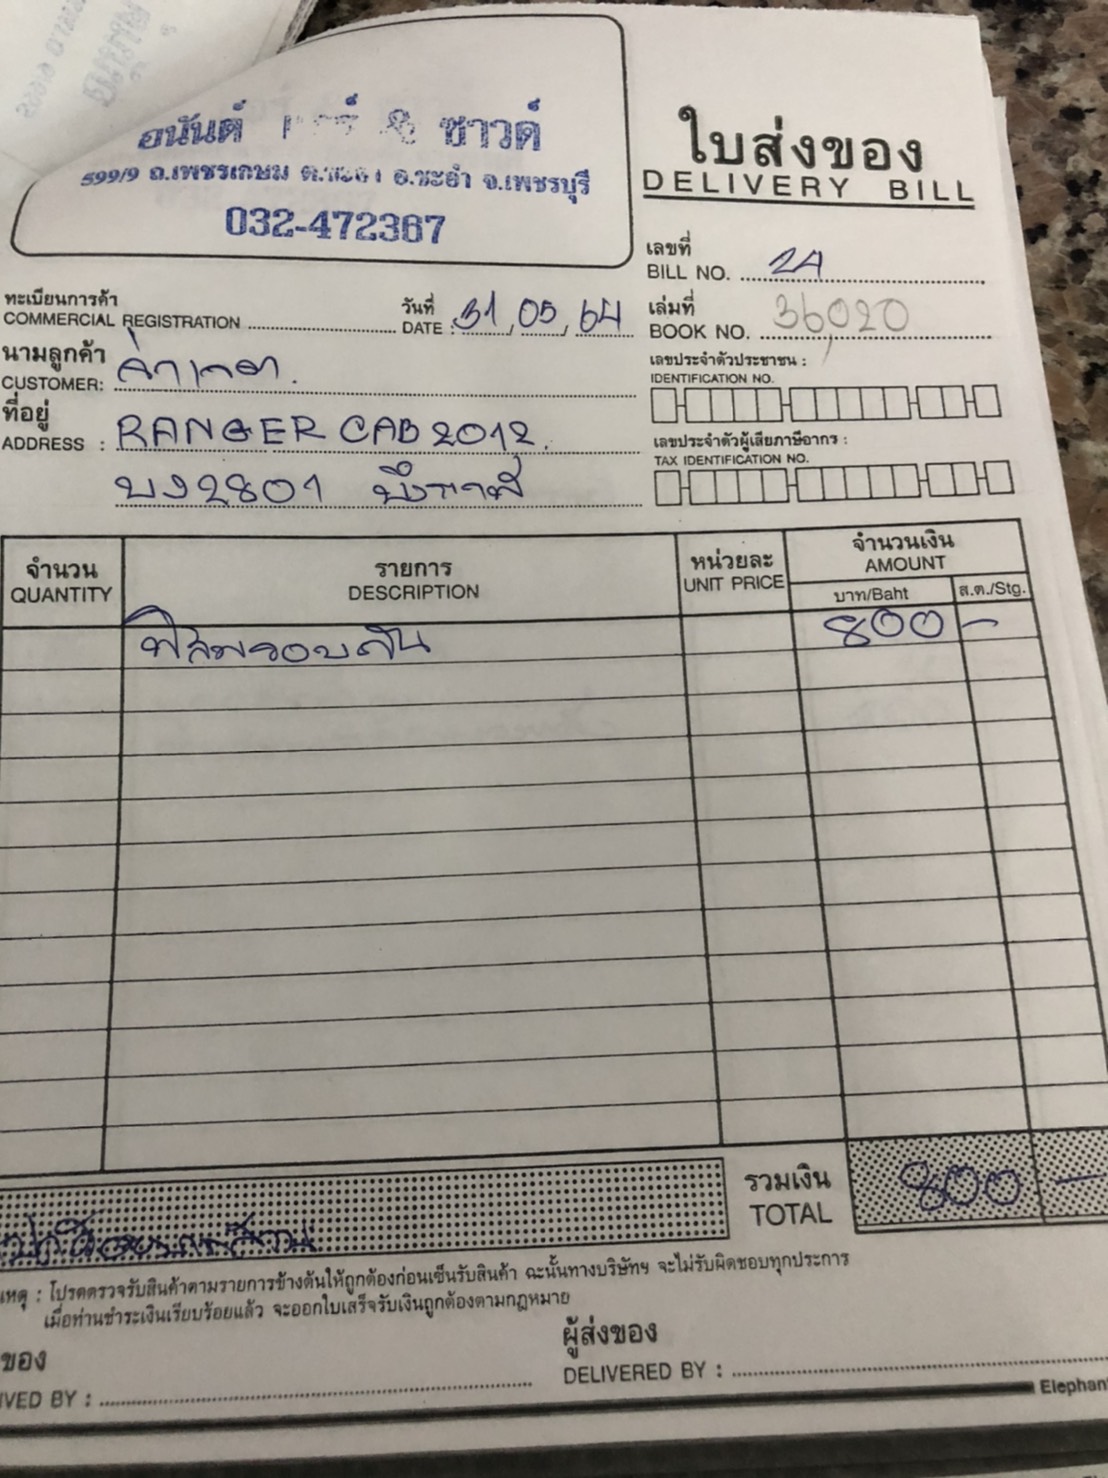 อนันต์ & ซาวด์
599/9 ถ.เพชรเกษม ต.ชะอำ อ.ชะอำ จ.เพชรบุรี
032-472367
ใบส่งของ
DELIVERY BILL
เลขที่
BILL NO. 24
ทะเบียนการค้า
COMMERCIAL REGISTRATION
วันที่
DATE : 31, 05, 64
เล่มที่
BOOK NO. 36020
นามลูกค้า
CUSTOMER:
เลขประจำตัวประชาชน :
IDENTIFICATION NO.
ที่อยู่
ADDRESS : RANGER CAB 2012.
เลขประจำตัวผู้เสียภาษีอากร :
TAX IDENTIFICATION NO.
บง2801 บึงกาฬ
จำนวน
QUANTITY
รายการ
DESCRIPTION
หน่วยละ
UNIT PRICE
จำนวนเงิน
AMOUNT
บาท/Baht
ส.ต./Stg.
ฟิล์มรอบคัน 800 -
รวมเงิน
TOTAL
800 -
เหตุ : โปรดตรวจรับสินค้าตามรายการข้างต้นให้ถูกต้องก่อนเซ็นรับสินค้า ฉะนั้นทางบริษัทฯ จะไม่รับผิดชอบทุกประการ
เมื่อท่านชำระเงินเรียบร้อยแล้ว จะออกใบเสร็จรับเงินถูกต้องตามกฎหมาย
ของ
IVED BY :
ผู้ส่งของ
DELIVERED BY :
Elephan